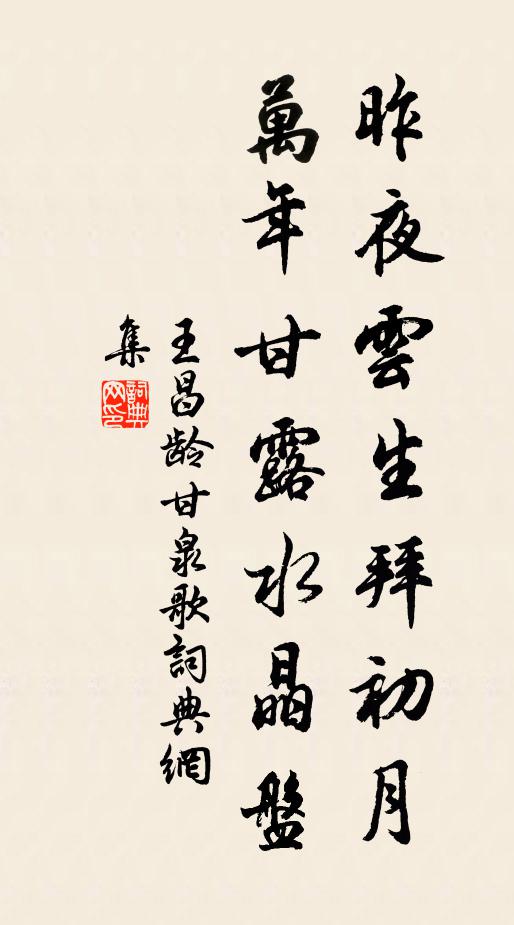 昨夜雲生拜初月
萬年甘露水晶盤
王昌龄甘泉歌詞典網
集
詞典
网印